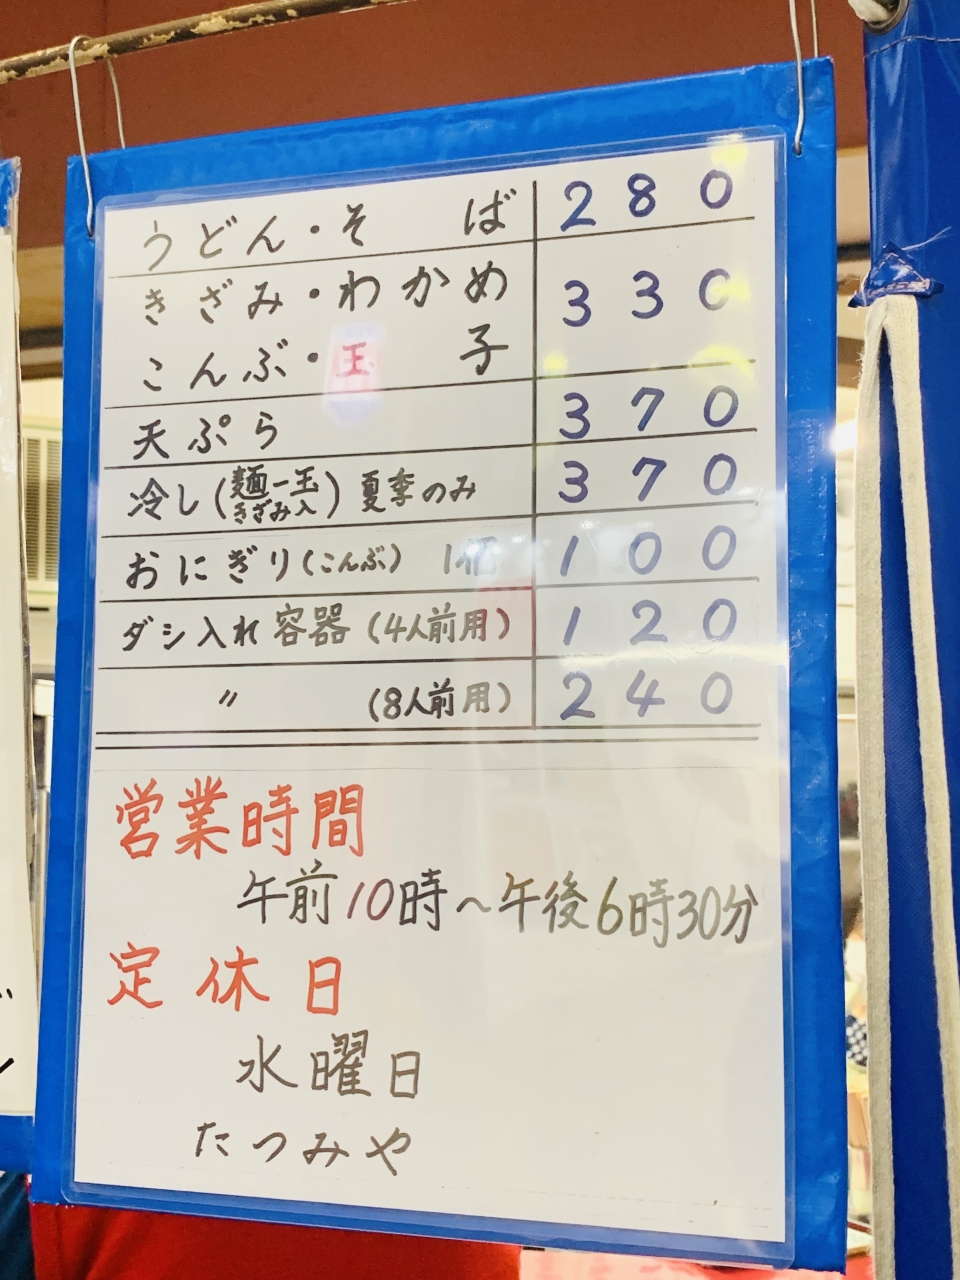 うどん・そば 280
きざみ・わかめ 330
こんぶ・玉子
天ぷら 370
冷し(麺一玉 きざみ入)夏季のみ 370
おにぎり(こんぶ) 1個 100
ダシ入れ容器(4人前用) 120
〃 (8人前用) 240
営業時間
午前10時～午後6時30分
定休日
水曜日
たつみや